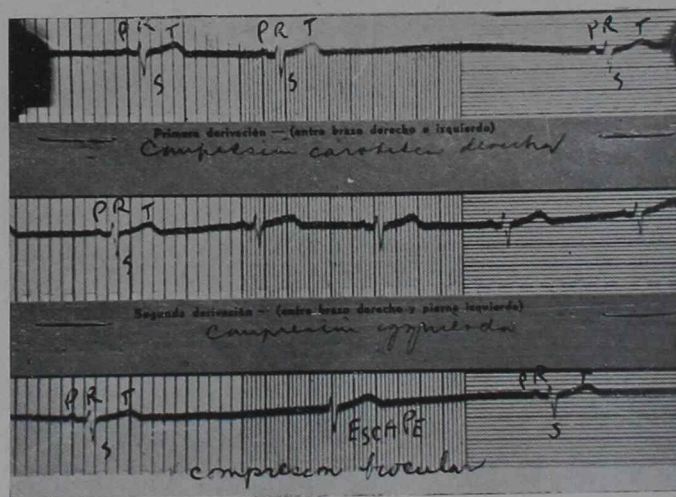 P R T P R T P R T
S S S
Primera derivación — (entre brazo derecho e izquierdo)
Compresión carotidea derecha
P R T
S
Segunda derivación — (entre brazo derecho y pierna izquierda)
compresión izquierda
P R T P R T
S ESCAPE S
compresión